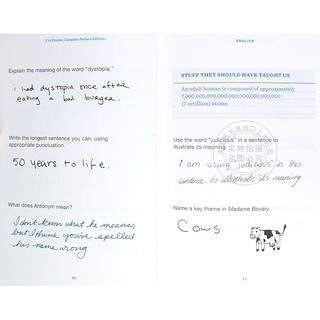 F in Exams: Complete Failure Edition
Explain the meaning of the word "dystopia."
i had dystopia once after
eating a bad burger.
Write the longest sentence you can, using
appropriate punctuation.
50 years to life.
What does Antonym mean?
I don't know what he means,
but I think you've spelled
his name wrong
ENGLISH
STUFF THEY SHOULD HAVE TAUGHT US
An adult human is composed of approximately
7,000,000,000,000,000,000,000,000,000
(7 octillion) atoms.
Use the word "judicious" in a sentence to
illustrate its meaning.
I am using "judicious" in this
sentence to illustrate its meaning
Name a key theme in Madame Bovary.
Cows